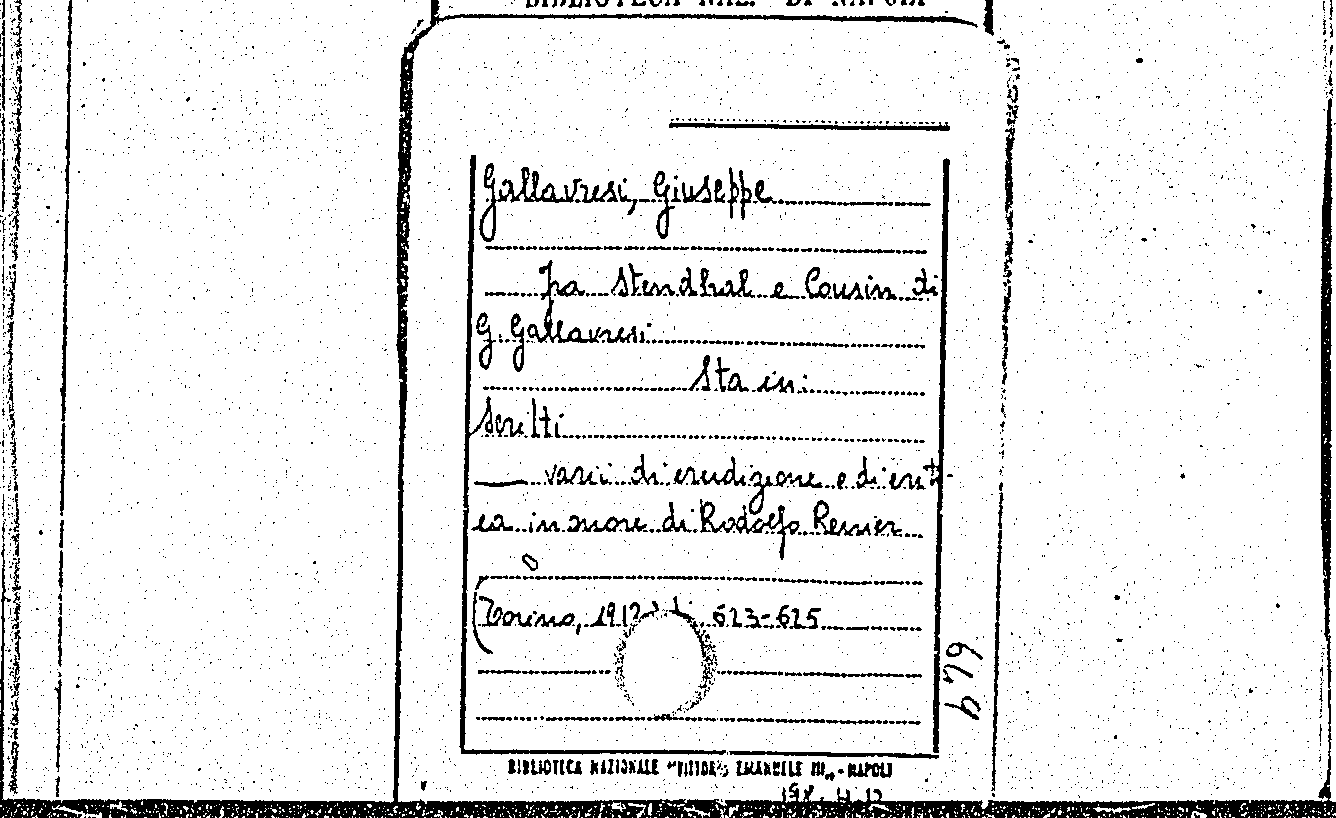 BIBLIOTECA NAZ. DI NAPOLI
Gallavresi, Giuseppe
Fra Stendhal e Cousin di
G. Gallavresi
Sta in:
Scritti
varii di erudizione e di crit-
ca in onore di Rodolfo Renier
(Torino, 1912 613-625
679
BIBLIOTECA NAZIONALE "VITTOR EMANUELE III" - NAPOLI